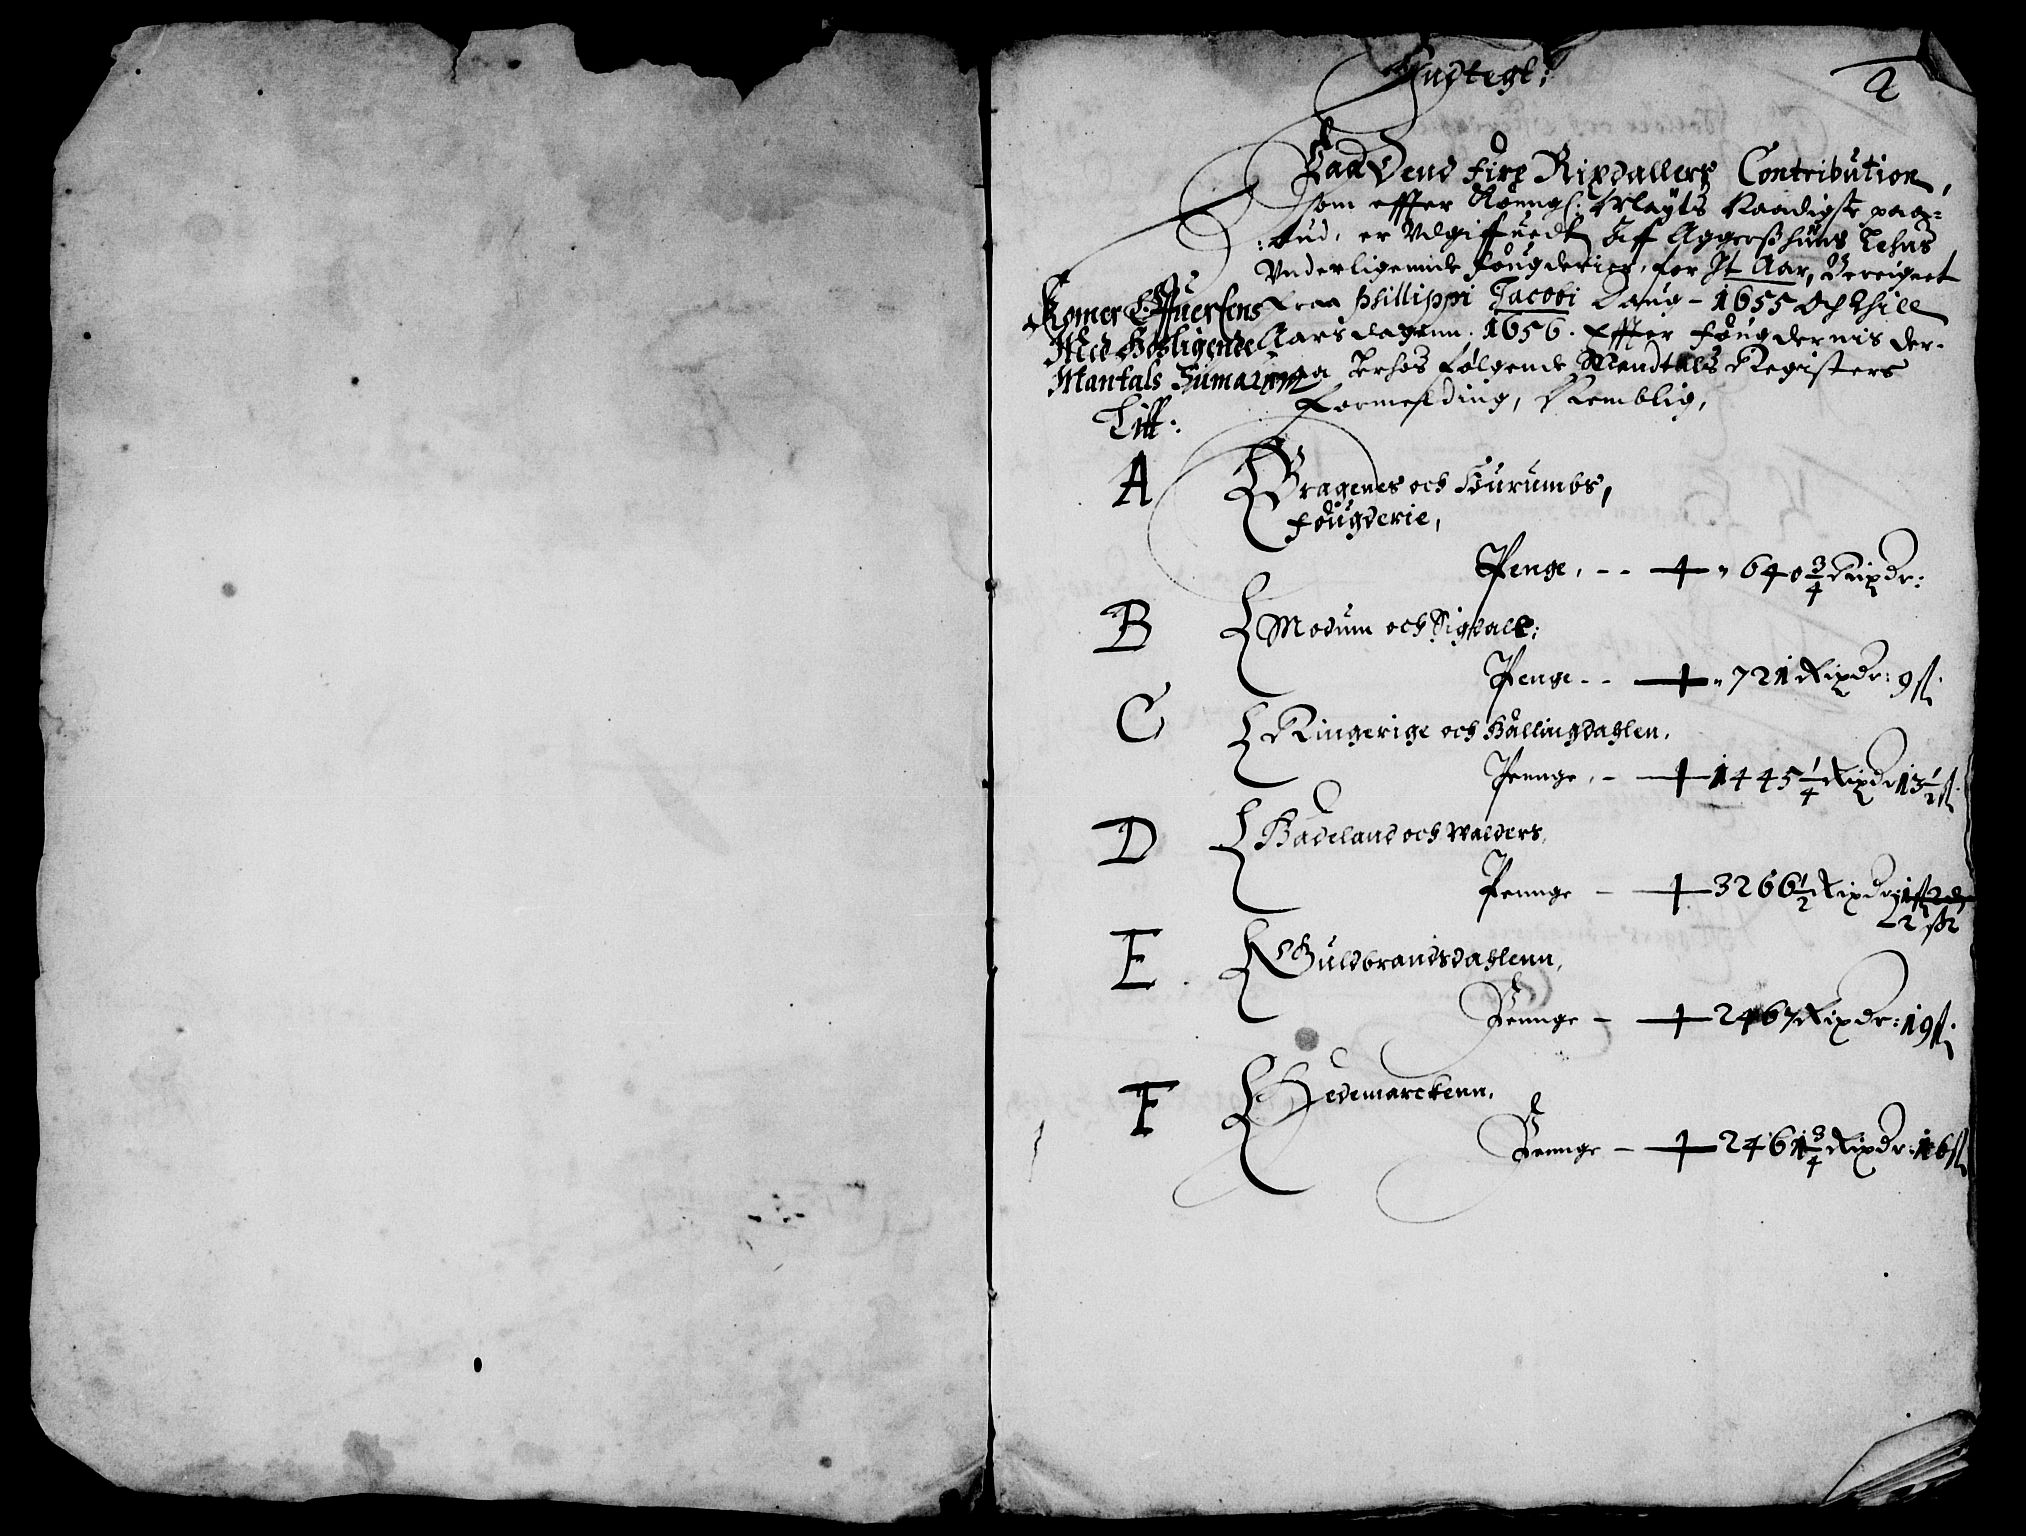 Indtegt:
2
Paa Dend fire Rixdallers Contribution,
som effter Konngl: Maÿts Naadigste paa-
:bud, er Udgiffuedt Aff Aggershuus Lehns
Underligennde fougderier, for It Aar, Bereignet
fraa Phillippi Jacobi Daug - 1655 Och thill
Aarsdagenn. 1656. Effter fougdernis der-
paa Lehns følgende Mandtals Registers
formelding, Nemblig,
Komer Offuerens
Med Hosligende
Mantals Zumarum
Litt:
A
Bragenes och Buurumbs,
fougderie,
Penge, -- 640 3/4 Rixdr:
B
Modum och Sigdall:
Penge -- 721 Rixdr: 9 ß:
C
Ringerige och Hallingdahlen,
Pennge, - 1445 1/4 Rixdr 13 1/2 ß.
D
Hadeland och Walders,
Pennge - 3266 1/2 Rixdr: 1 ß 2 d
2 ß
E
Guldbrandsdahlenn,
Pennge - 2467 Rixdr: 19 ß.
F
Hedemarckenn,
Pennge - 2461 3/4 Rixdr: 16 ß